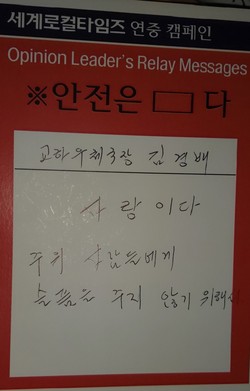 세계로컬타임즈 연중 캠페인
Opinion Leader's Relay Messages
※안전은 □ 다
고하우체국장 김경배
사랑이다
주위 사람들에게
슬픔을 주지 않기 위해서